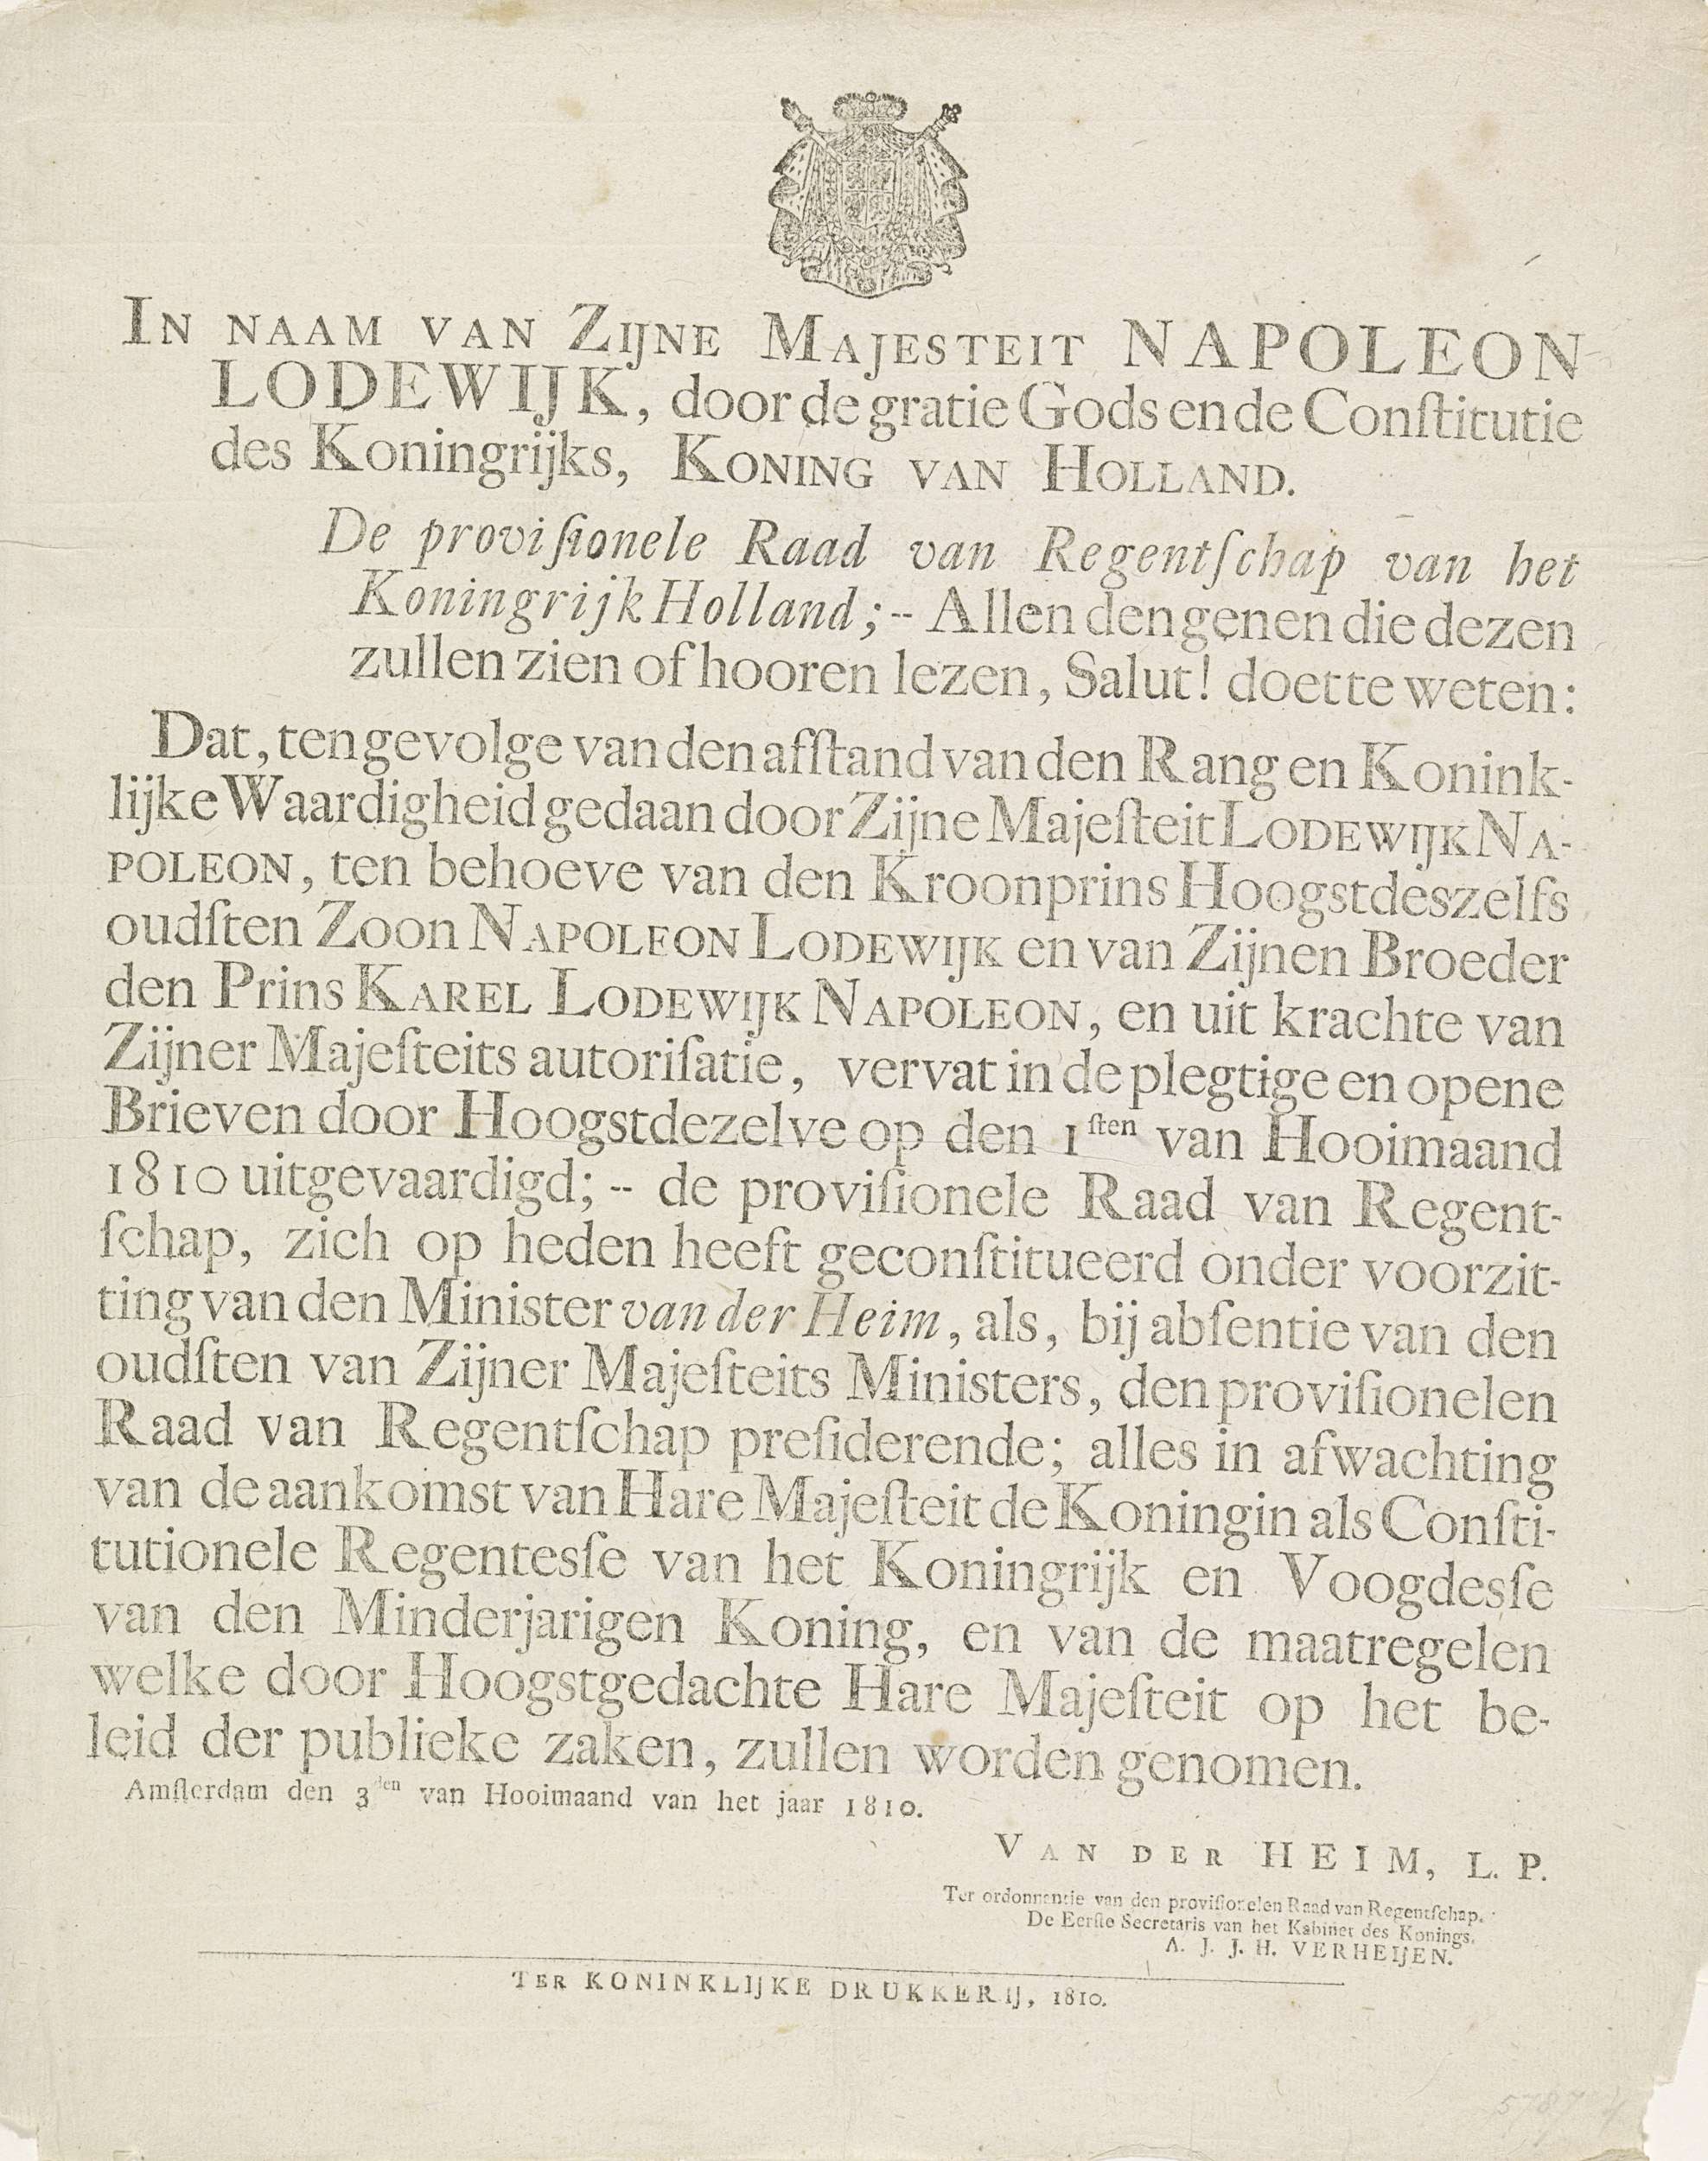 In naam van Zijne Majesteit NAPOLEON
LODEWIJK, door de gratie Gods en de Conſtitutie
des Koningrijks, Koning van Holland.
De proviſionele Raad van Regentſchap van het
Koningrijk Holland; -- Allen den genen die dezen
zullen zien of hooren lezen, Salut! doet te weten:
Dat, ten gevolge van den afſtand van den Rang en Konink-
lijke Waardigheid gedaan door Zijne Majeſteit Lodewijk Na-
poleon, ten behoeve van den Kroonprins Hoogstdeszelfs
oudſten Zoon Napoleon Lodewijk en van Zijnen Broeder
den Prins Karel Lodewijk Napoleon, en uit krachte van
Zijner Majeſteits autoriſatie, vervat in de plegtige en opene
Brieven door Hoogstdezelve op den 1ſten van Hooimaand
1810 uitgevaardigd; -- de proviſionele Raad van Regent-
ſchap, zich op heden heeft geconſtitueerd onder voorzit-
ting van den Minister van der Heim, als, bij abſentie van den
oudſten van Zijner Majeſteits Ministers, den proviſionelen
Raad van Regentſchap preſiderende; alles in afwachting
van de aankomst van Hare Majeſteit de Koningin als Conſti-
tutionele Regentesſe van het Koningrijk en Voogdesſe
van den Minderjarigen Koning, en van de maatregelen
welke door Hoogstgedachte Hare Majeſteit op het be-
leid der publieke zaken, zullen worden genomen.
Amſterdam den 3den van Hooimaand van het jaar 1810.
Van der HEIM, L. P.
Ter ordonnentie van den proviſionelen Raad van Regentſchap.
De Eerſte Secretaris van het Kabinet des Konings,
A. J. J. H. VERHEIJEN.
Ter KONINKLIJKE DRUKKERIJ, 1810.